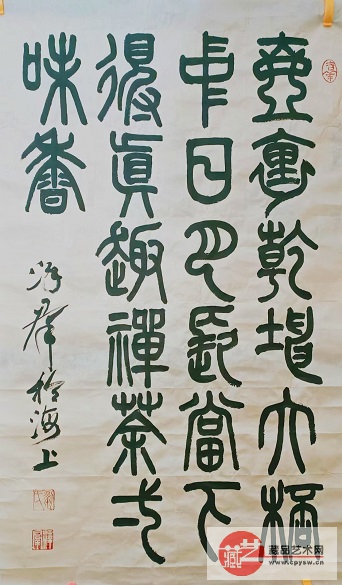 壺裏乾坤大桮
中日月長當下
得真趣禪茶弌
味香
群於海上
藏品艺术网
www.cpysw.cn